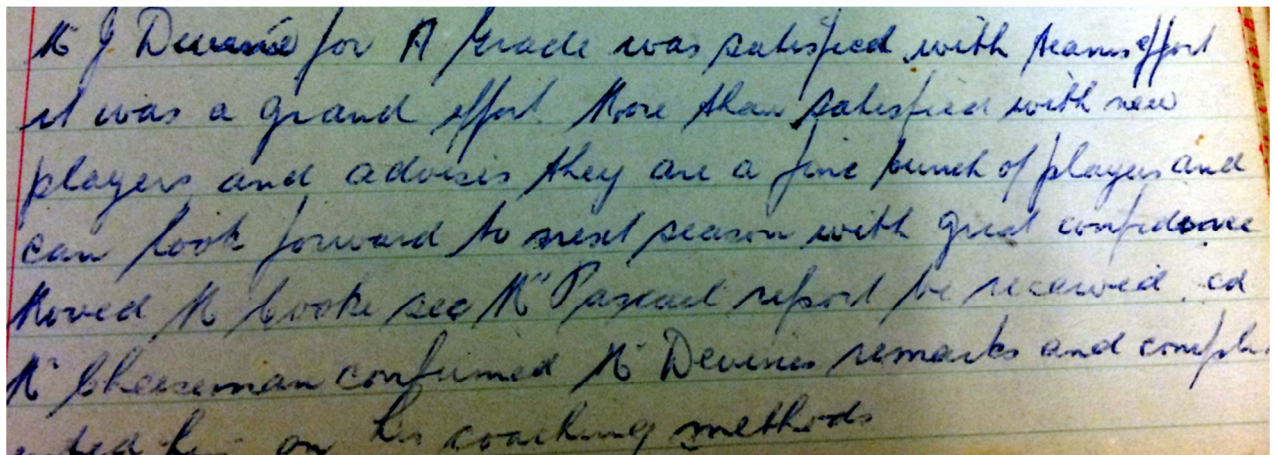 Mr J Devine for A Grade was satisfied with teams effort
it was a grand effort More than satisfied with new
players and advises they are a fine bunch of players and
can look forward to next season with great confidence
Moved Mr Cooke sec Mr Pascoe report be received cd
Mr Cheeseman confirmed Mr Devines remarks and compli
mented him on his coaching methods